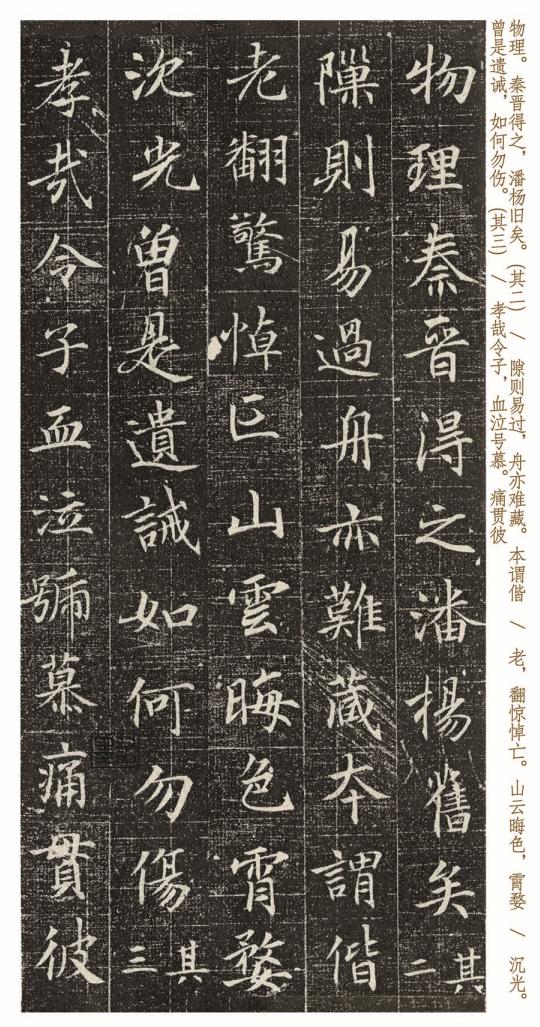 物理秦晋得之潘楊舊矣其二
隟則易過舟亦難藏本謂偕
老翻驚悼亡山雲晦色霄婺
沈光曾是遺誡如何勿傷其三
孝哉令子血泣號慕痛貫彼
物理。秦晋得之，潘杨旧矣。（其二） / 隙则易过，舟亦难藏。本谓偕 / 老，翻惊悼亡。山云晦色，霄婺 / 沉光。
曾是遗诫，如何勿伤。（其三） / 孝哉令子，血泣号慕。痛贯彼